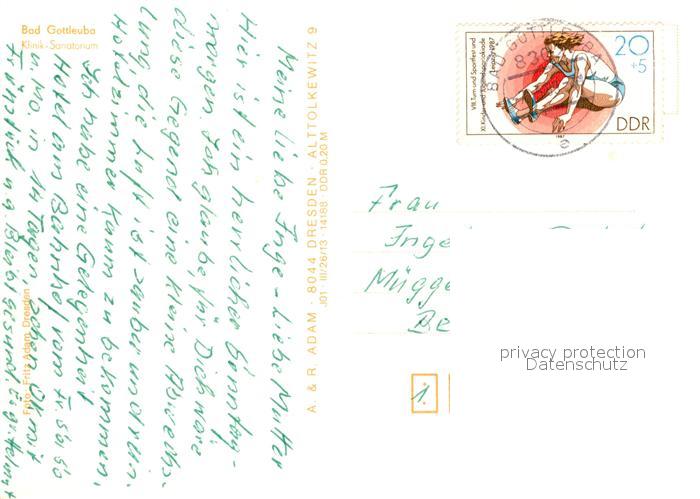 Bad Gottleuba
Klinik-Sanatorium
Meine liebe Inge - Liebe Mutter
Hier ist ein herrlicher Sonntag-
morgen. Ich glaube, für Dich wäre
diese Gegend eine kleine Abwechs-
lung, die Luft ist sauber und
Hotelzimmer kaum zu bekommen.
Ich habe eine Gelegenheit
u. Mo. in 14 Tagen,
Hotel am Bahnhof vom Fr.
Frühstück u.a. Bleibt gesund,
Foto: Fritz Adam, Dresden
A. & R. ADAM · 8044 DRESDEN · ALTTOLKEWITZ 9
J01 · III/26/13 · 14188 · DDR 0,20 M
VIII. Turn- und Sportfest und
XI. Kinder- und Jugendspartakiade
Leipzig 1987
20
+5
DDR
1987
BAD GOTTLEUBA
830
e
Frau
Inge
Mügge
Be
1
privacy protection
Datenschutz